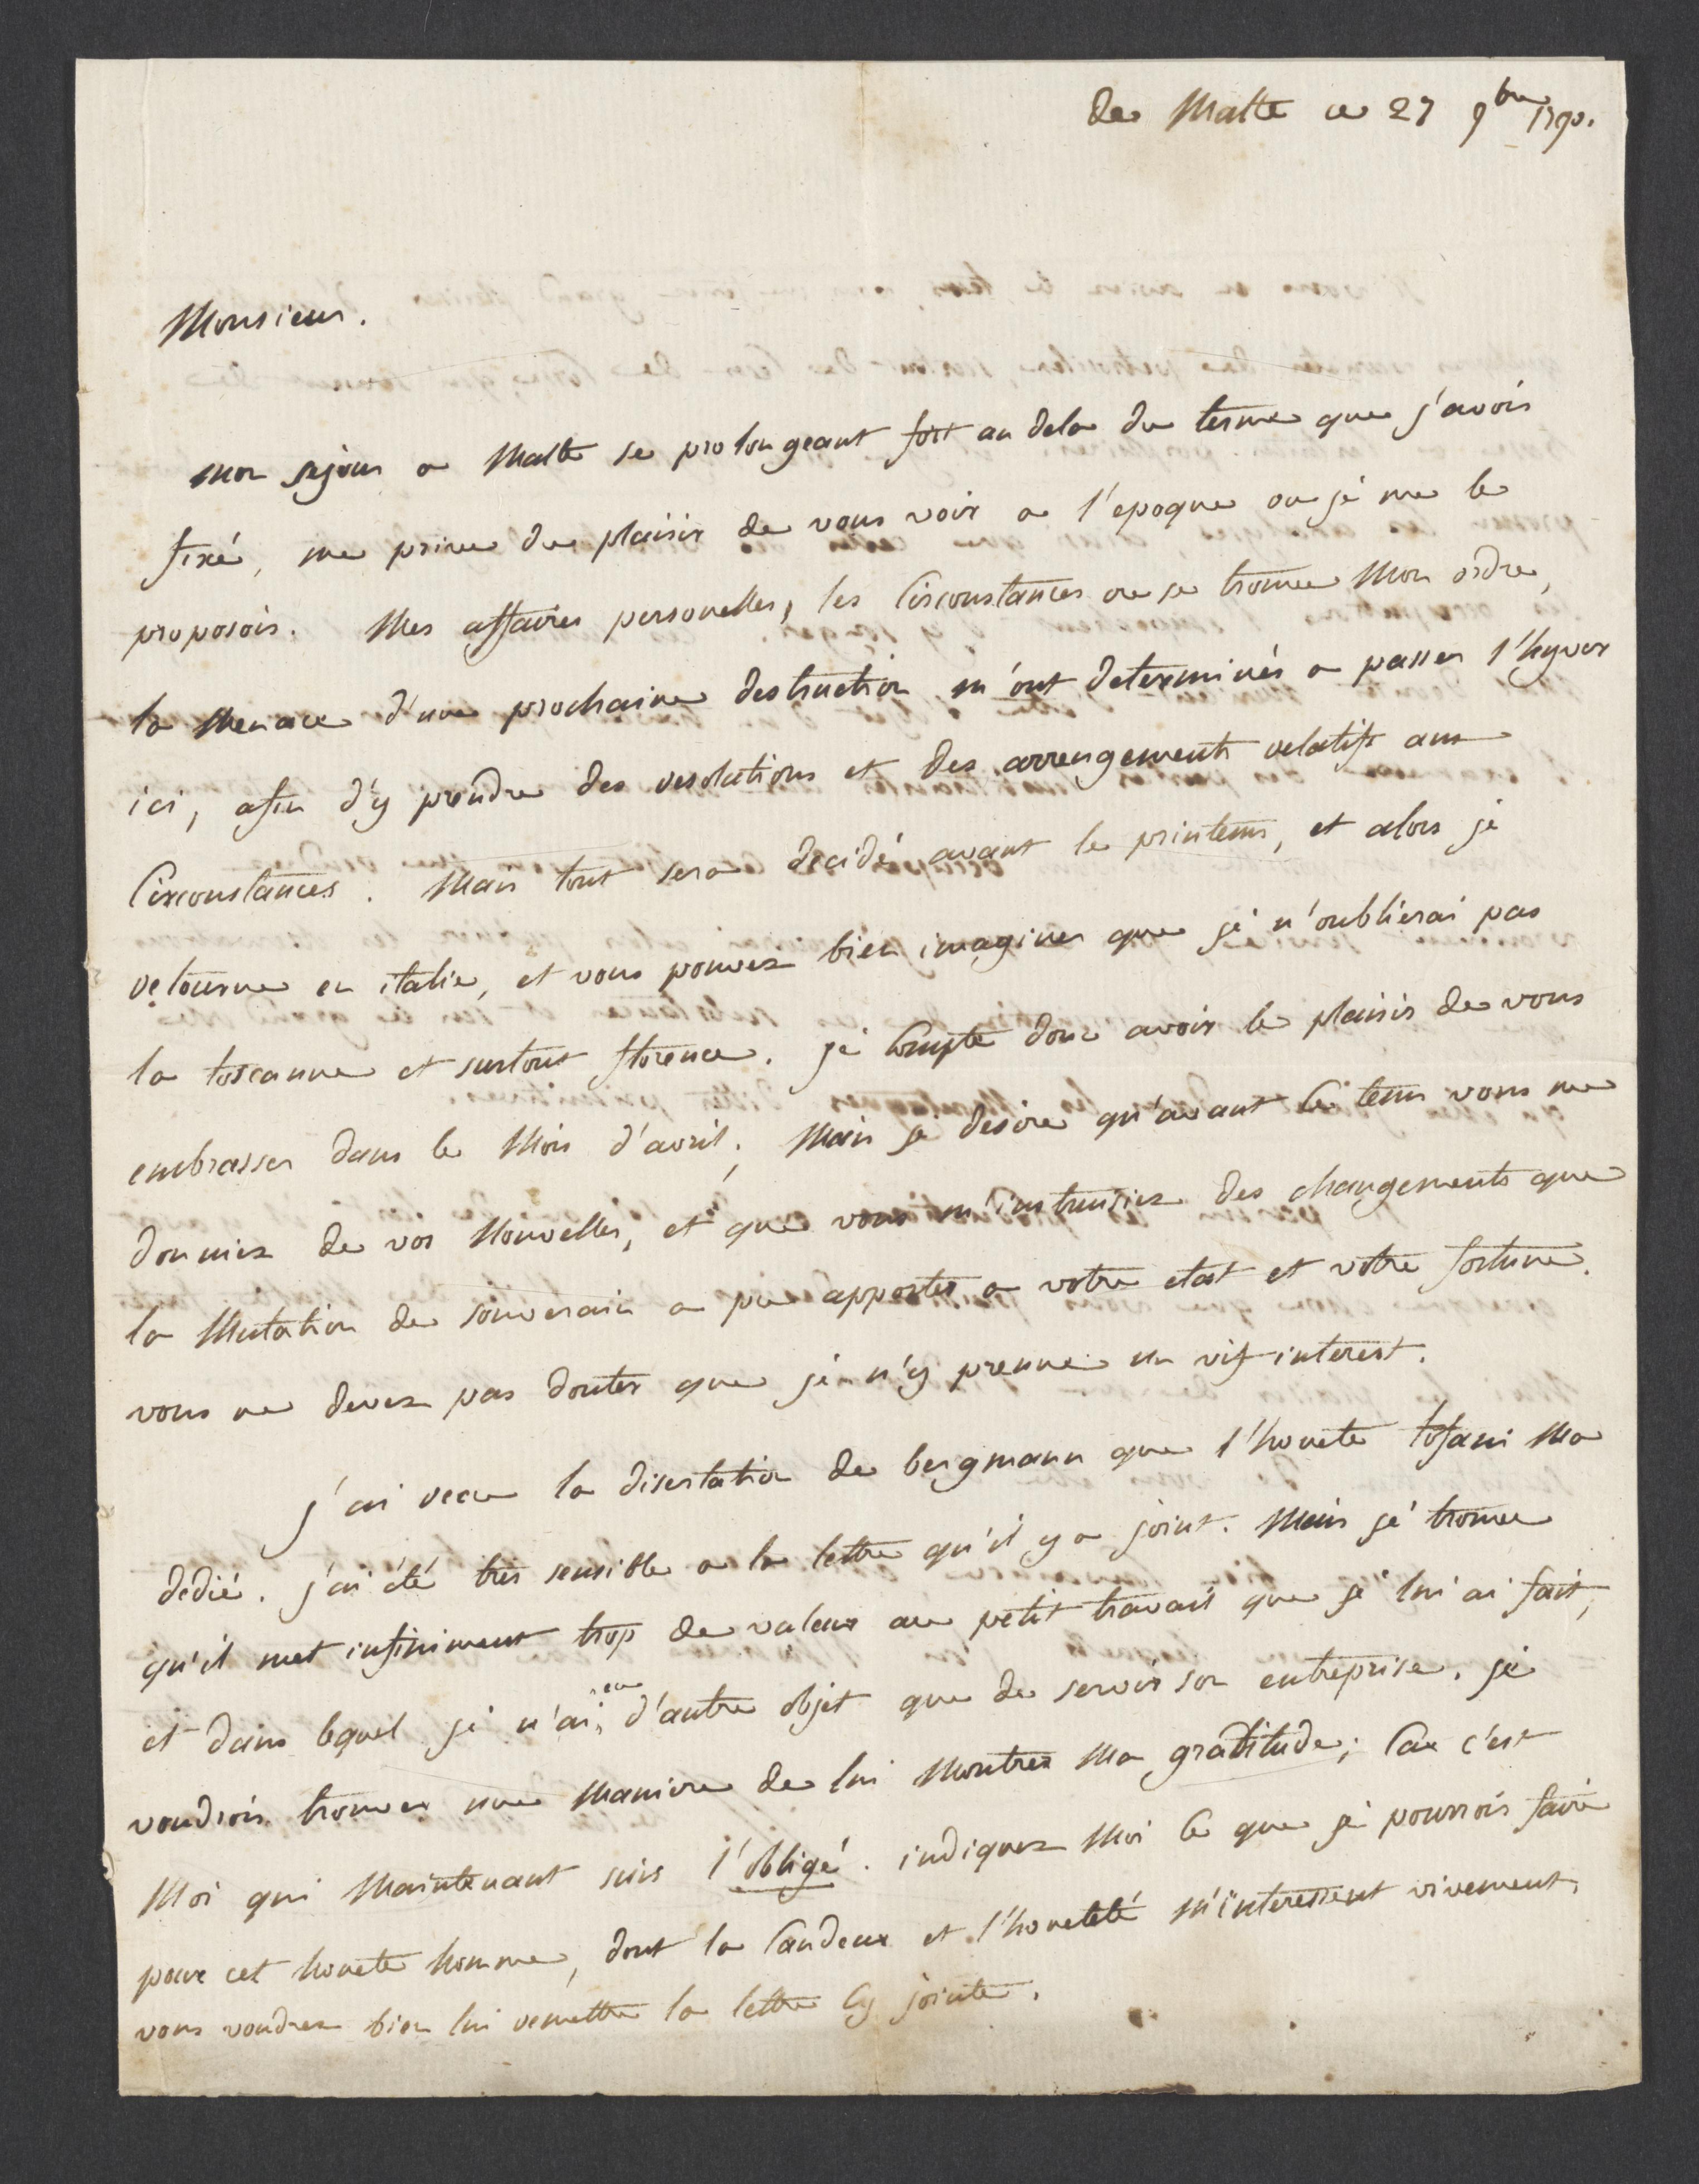 De Malte ce 27 9bre 1790.
Monsieur.
mon sejour a Malte se prolongeant fort au dela du terme que j'avois
fixé, me prive du plaisir de vous voir a l'epoque ou je me le
proposois. Mes affaires personelles, les Circonstances ou se trouve Mon ordre,
la Menace d'une prochaine destruction m'ont determinés a passer l'hyver
ici, afin d'y prendre des resolutions et des arrengements relatifs aux
Circonstances. Mais tout sera decidé avant le printems, et alors je
retourne en italie, et vous pouvez bien imaginer que je n'oublierai pas
la toscanne et surtout florence. je Compte donc avoir le plaisir de vous
embrasser dans le Mois d'avril; Mais je desire qu'avant Ce tems vous me
donniez de vos Nouvelles, et que vous m'instruisiez des changements que
la Mutation de souverain a pu apporter a votre etat et votre fortune.
vous ne devez pas douter que je n'y prenne un vif interest.
j'ai recu la disertation de bergmann que l'honete tofani Ma
dedié. j'ai été très sensible a la lettre qu'il y a joint. Mais je trouve
qu'il met infiniment trop de valeur au petit travail que je lui ai fait,
et dans lequel je n'ai eu d'autre objet que de servir son entreprise. je
voudrois trouver une Maniere de lui Montrer Ma gratitude; Car c'est
Moi qui Maintenant suis l'obligé. indiquez Moi Ce que je pourrois faire
pour cet honete homme, dont la Candeur et l'honeteté M'interessent vivement.
vous voudrez bien lui remettre la lettre Cy jointe.